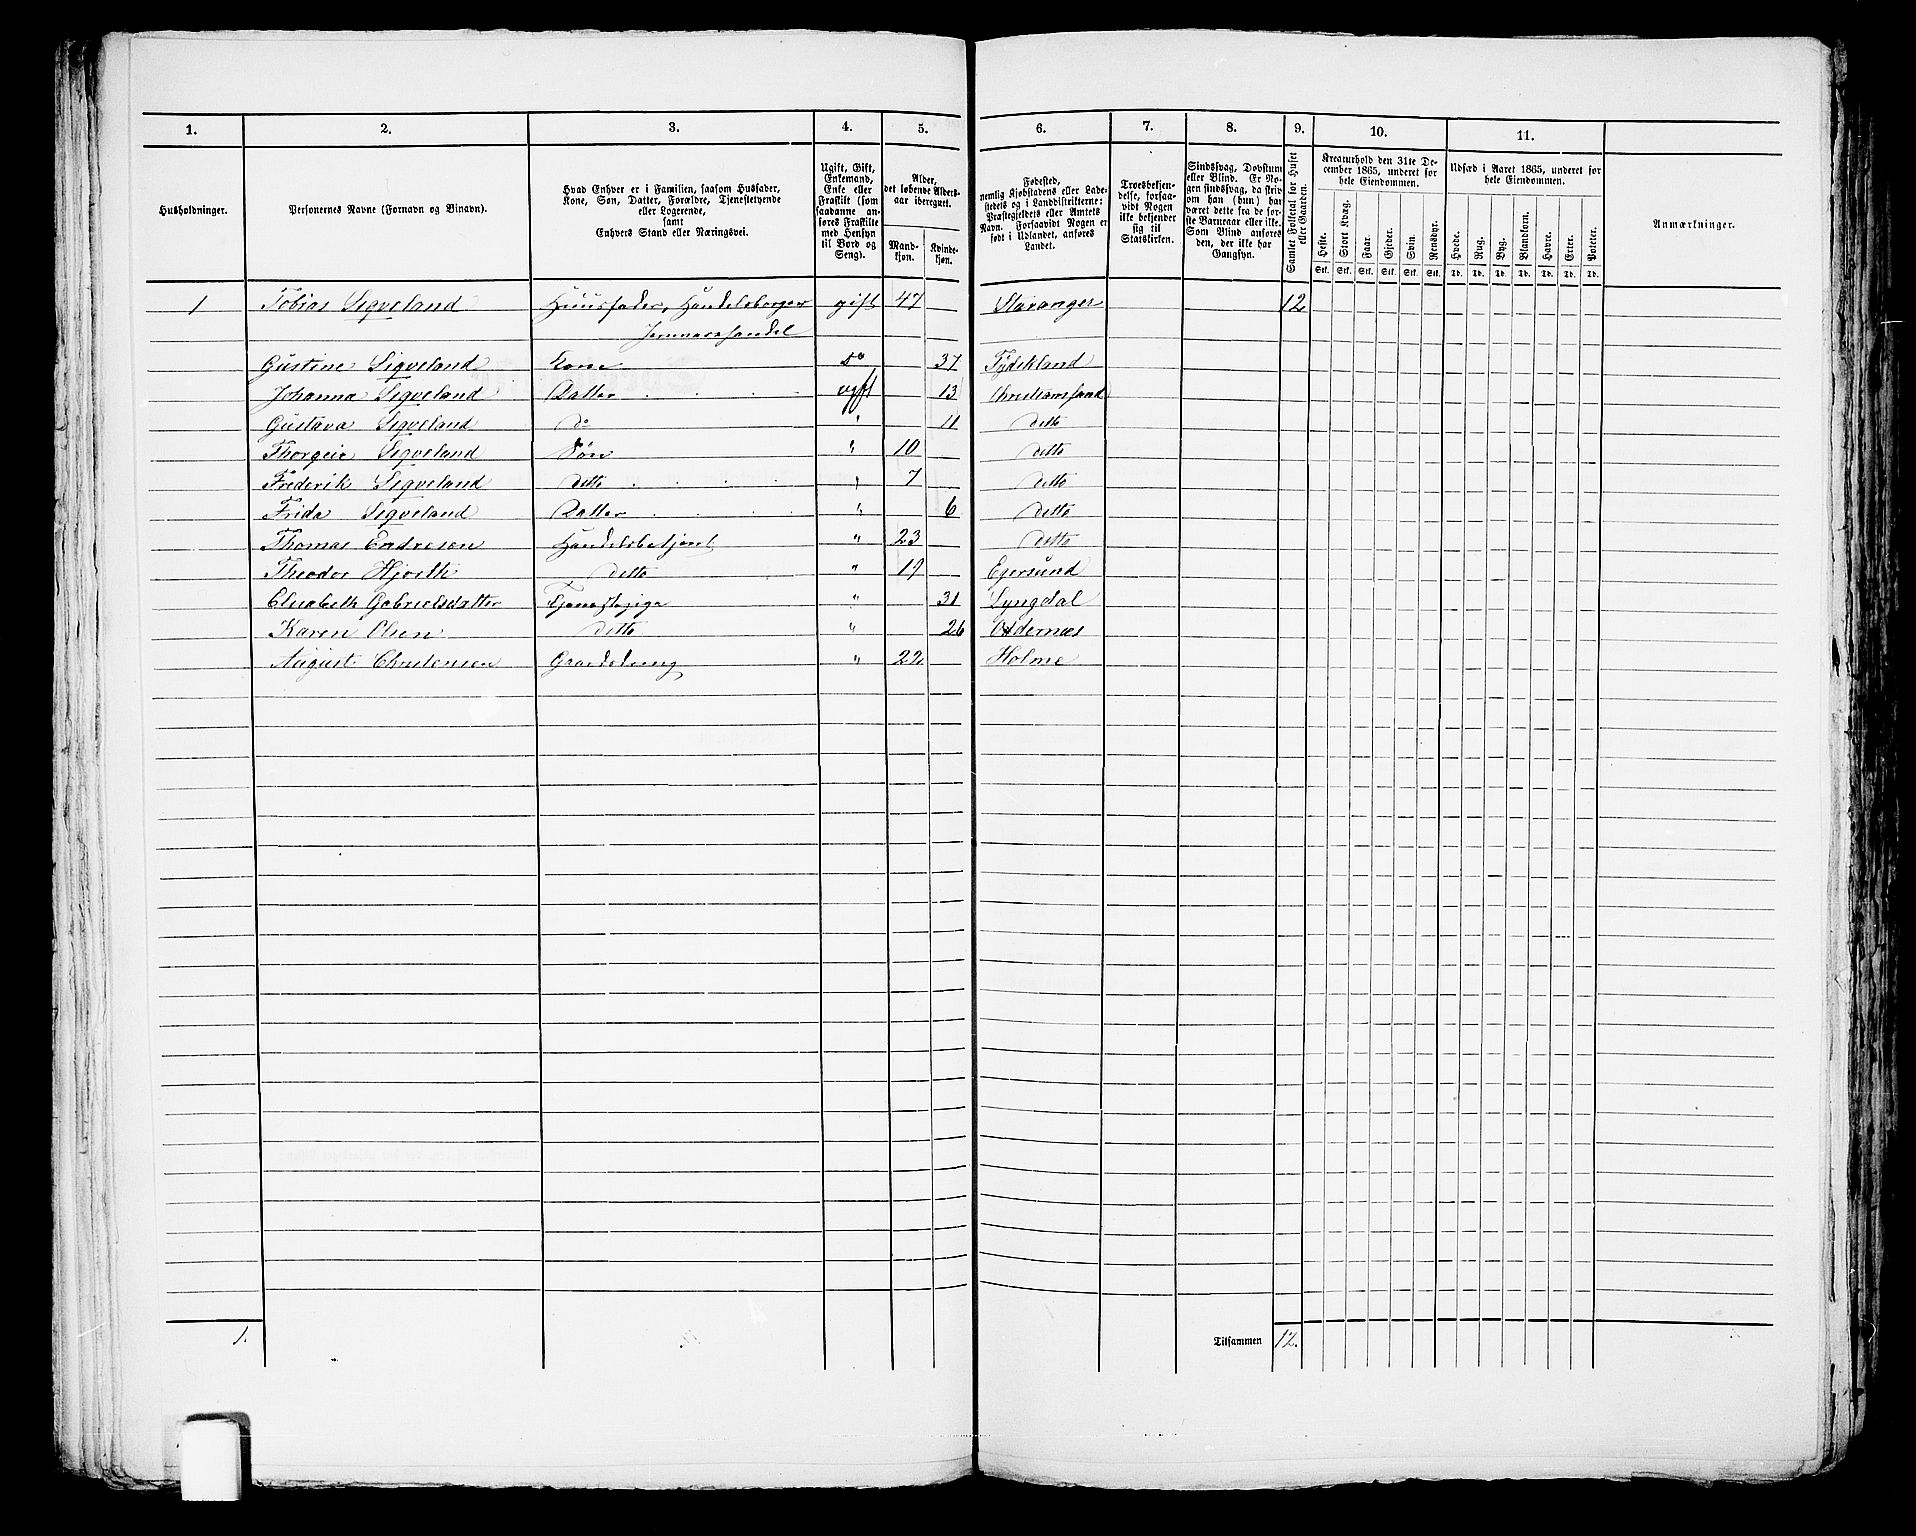 1. 2. 3. 4. 5. 6. 7. 8. 9. 10. 11.
Husholdninger.
Personernes Navne (Fornavn og Binavn).
Hvad Enhver er i Familien, saasom Husfader,
Kone, Søn, Datter, Forældre, Tjenestetyende
eller Logerende,
samt
Enhvers Stand eller Næringsvei.
Ugift, Gift,
Enkemand,
Enke eller
Fraskilt (som
saadanne an-
føres Fraskilte
med Hensyn
til Bord og
Seng).
Alder,
det løbende Alders-
aar iberegnet.
Mand-
kjøn.
Kvinde-
kjøn.
Fødested,
nemlig Kjøbstadens eller Lade-
stedets og i Landdistrikterne:
Præstegjeldets eller Amtets
Navn. Forsaavidt Nogen er
født i Udlandet, anføres
Landet.
Troesbekjen-
delse, forsaa-
vidt Nogen
ikke bekjender
sig til
Statskirken.
Sindssvag, Døvstum
eller Blind. Er No-
gen sindssvag, da skriv
om han (hun) har
været dette fra de før-
ste Barneaar eller ikke.
Som Blind anføres
den, der ikke har
Gangsyn.
Samlet Folketal for Huset
eller Gaarden.
Kreaturhold den 31te De-
cember 1865, underet for
hele Eiendommen.
Heste. Stort Kvæg. Faar. Gjeder. Svin. Rensdyr.
Stk. Stk. Stk. Stk. Stk. Stk.
Udsæd i Aaret 1865, underet for
hele Eiendommen.
Hvede. Rug. Byg. Blandkorn. Havre. Erter. Poteter.
Td. Td. Td. Td. Td. Td. Td.
Anmærkninger.
1 Tobias Sigveland Huusfader, Handelsborger gift 47 Stavanger 12
Jernvarehandel
Gustine Sigveland Kone do 37
Johanna Sigveland Datter ugft 13 Christiansand
Gustava Sigveland do " 11 detto
Thorgeir Sigveland Søn " 10 detto
Frederik Sigveland detto " 7 detto
Frida Sigveland Datter " 6 detto
Thomas Endresen Handelsbetjent " 23 detto
Theodor Hjorth detto " 19 Egersund
Elisabeth Gabrielsdatter Tjenestepige " 31 Lyngdal
Karen Olsen detto " 26 Oddernæs
August Christensen Gaardsdreng " 22 Holme
1. Tilsammen 12.